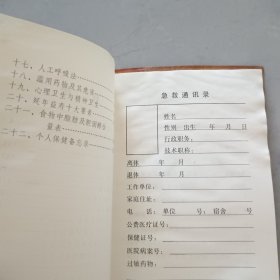 十七、人工呼吸法
十八、滥用药物及其危害
十九、心理卫生与精神卫生
二十、延年益寿十大要素
二十一、食物中脂肪及胆固醇含
量表
二十二、个人保健备忘录
急救通讯录
姓名
性别 出生 年 月 日
行政职务：
技术职称：
离休 年 月
退休 年 月
工作单位：
家庭住址：
电 话：单位 号：宿舍 号
公费医疗证号：
保健证号：
医院病案号：
过敏药物：